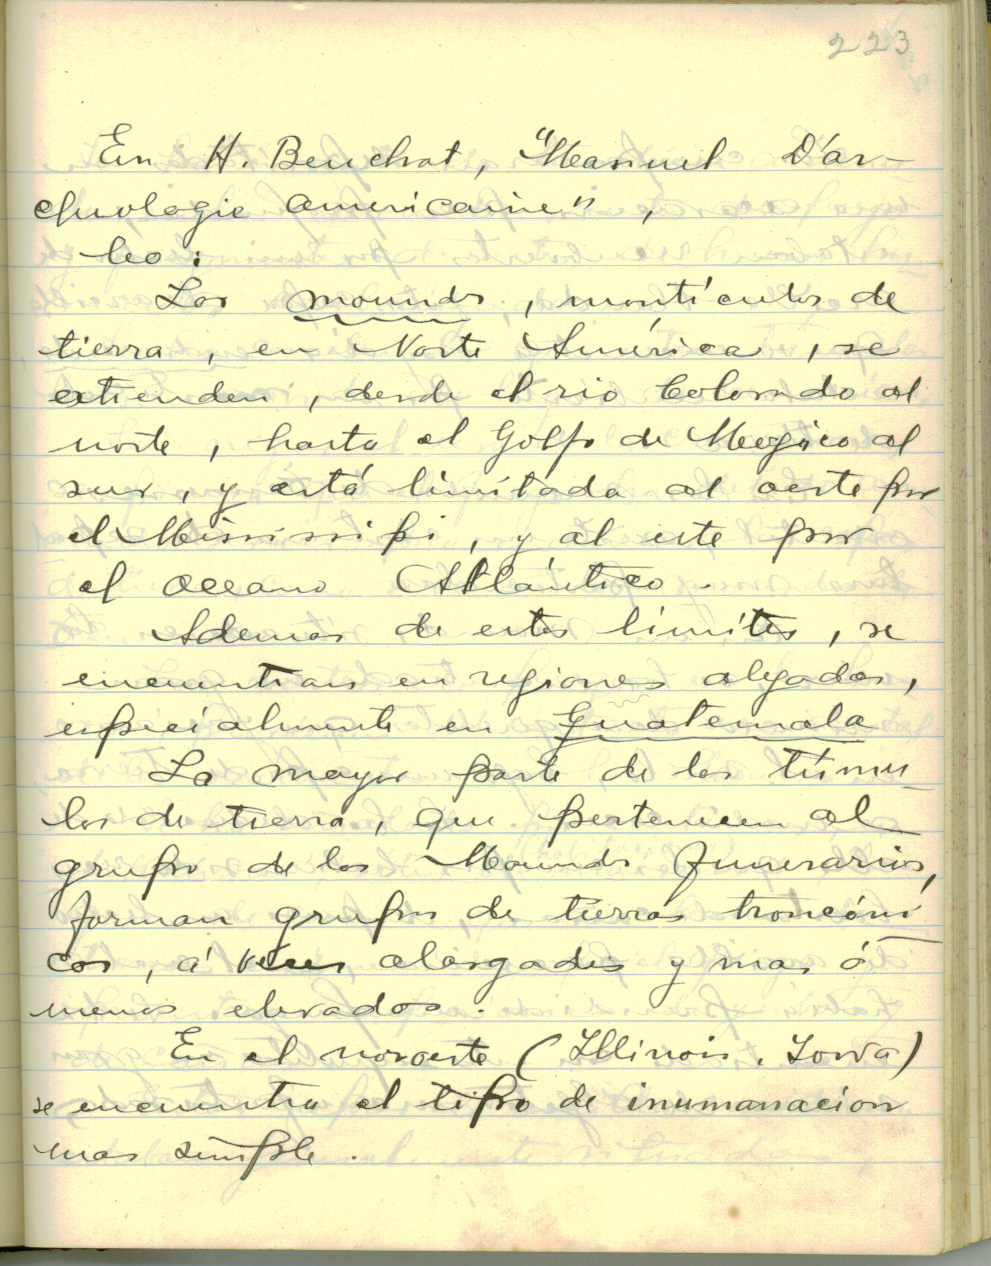 223
En H. Beuchat, "Manuel D'ar-
cheologie americaine",
leo:
Los mounds, montículos de
tierra, en Norte América, se
extienden, desde el rio Colorado al
norte, hasta el Golfo de Megico al
sur, y está limitada al oeste por
el Missisipi, y al este por
el oceano Atlántico.
Ademas de estos limites, se
encuentran en regiones alejadas,
especialmente en Guatemala
La mayor parte de los túmu-
los de tierra, que pertenecen al
grupo de los Mounds funerarios,
forman grupos de tierras troncóni-
cos, á veces alargados y mas ó
menos elevados.
En el noroeste (Illinois, Iowa)
se encuentra el tipo de inumanacion
mas simple.